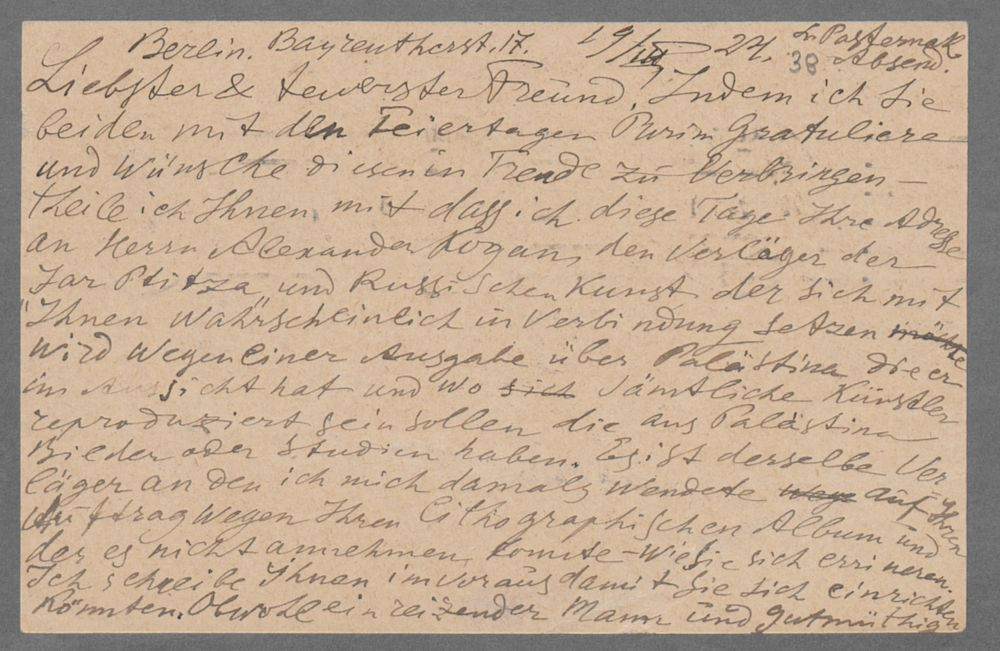 Berlin. Bayreutherst. 17. 19/III 24. L. Pasternak
38 Absend.
Liebster & tewerster Freund, Indem ich Sie
beiden mit den Feiertagen Purim Gratuliere
und Wünsche diesen in Freude zu Verbringen –
theile ich Ihnen mit dass ich diese Tage Ihre Adresse
an Herrn Alexander Kogan, den Verläger der
Jar Ptitza und Russischen Kunst der sich mit
Ihnen Wahrscheinlich in Verbindung setzen möchte
wird wegen einer Ausgabe über Palästina die er
im Aussicht hat und wo sich sämtliche Künstler
reproduziert sein sollen die aus Palästina
Bilder oder Studien haben. Es ist derselbe Ver
läger an den ich mich damals wendete wege auf Ihren
Auftrag wegen Ihren Lithographischen Album und
der es nicht annehmen konnte – wie Sie sich errineren.
Ich schreibe Ihnen im voraus damit Sie sich einrichten
könnten. Obwohl ein reizender Mann und gutmüthig